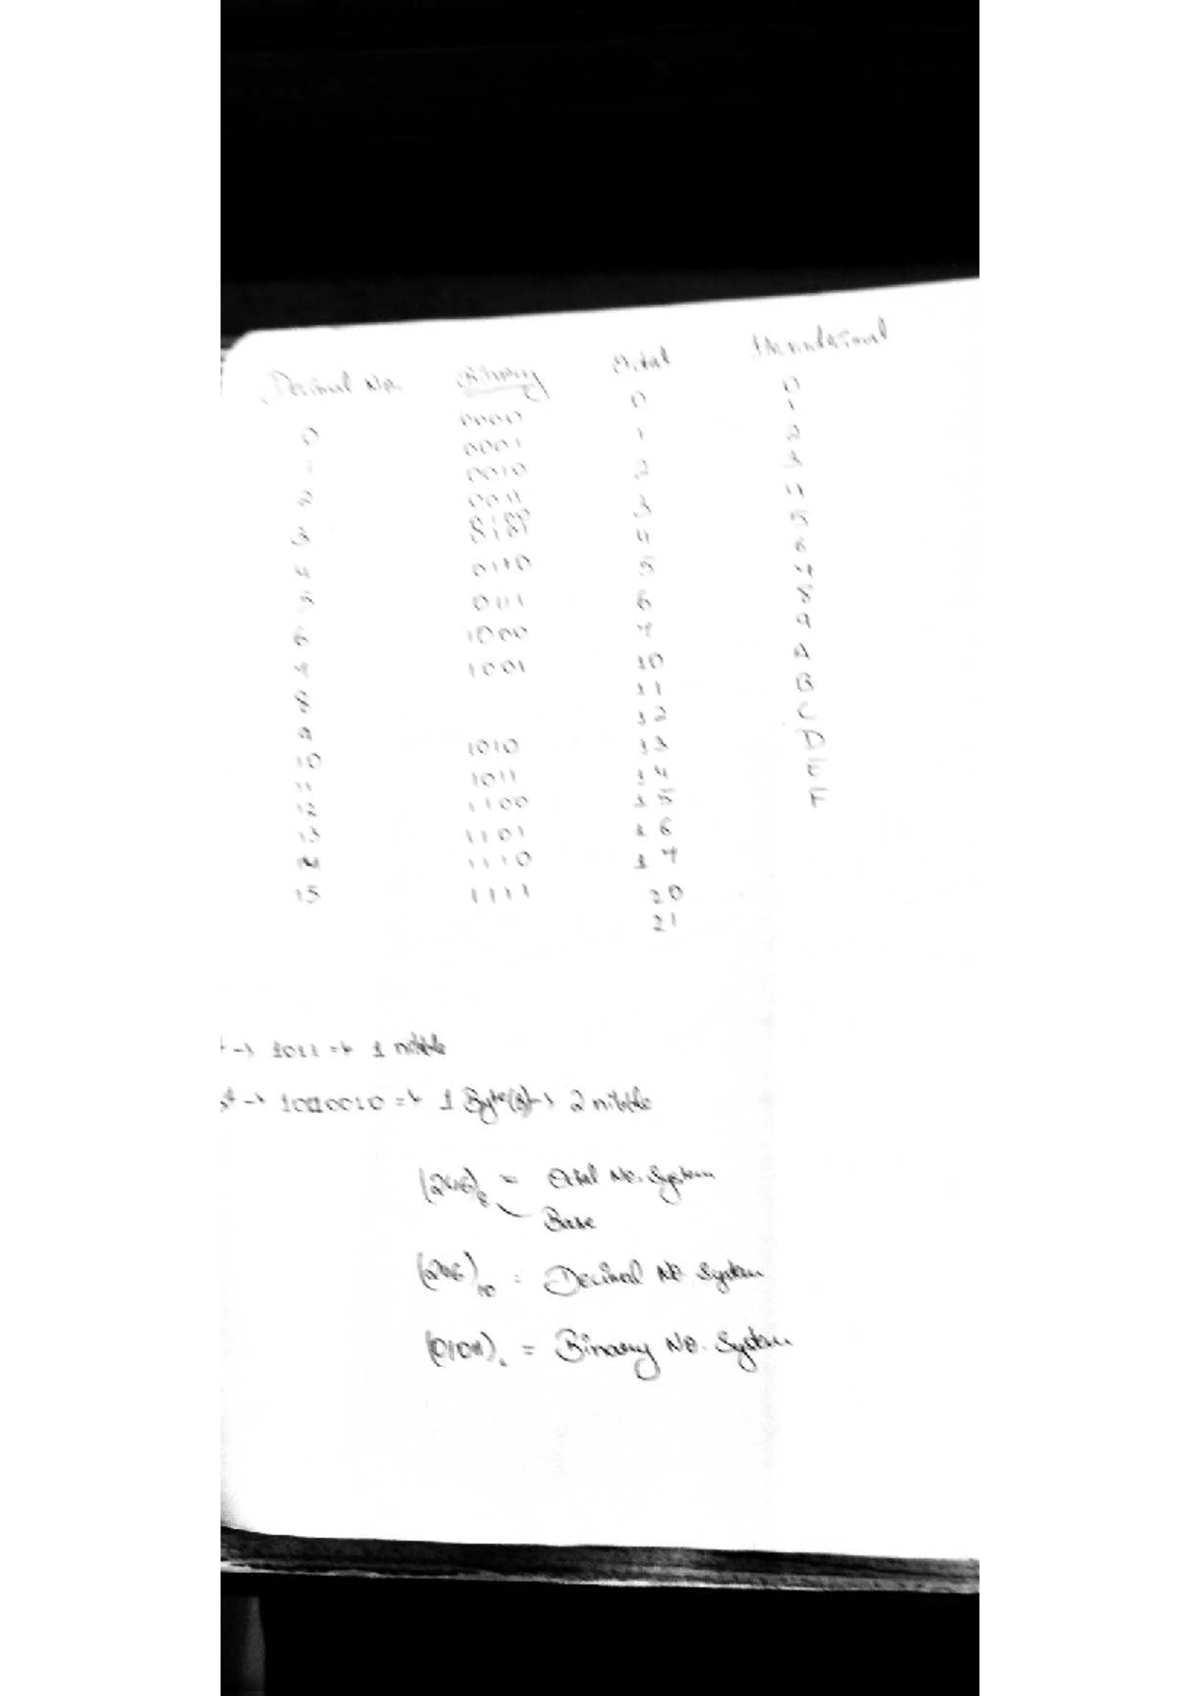 Decimal No. Binary Octal Hexadecimal
0 0000 0 0
1 0001 1 1
2 0010 2 2
3 0011 3 3
4 0100 4 4
5 0101 5 5
6 0110 6 6
7 0111 7 7
8 1000 10 8
9 1001 11 9
10 1010 12 A
11 1011 13 B
12 1100 14 C
13 1101 15 D
14 1110 16 E
15 1111 17 F
20
21
→ 1011 => 1 nibble
→ 10110010 => 1 Byte(B) → 2 nibble
(246)8 = Octal No. System
Base
(246)10 = Decimal No System
(01011) = Binary No. System